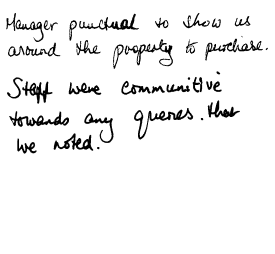 Manager punctual to show us
around the property to purchase.
Staff were communitive
towards any queres. that
we noted.